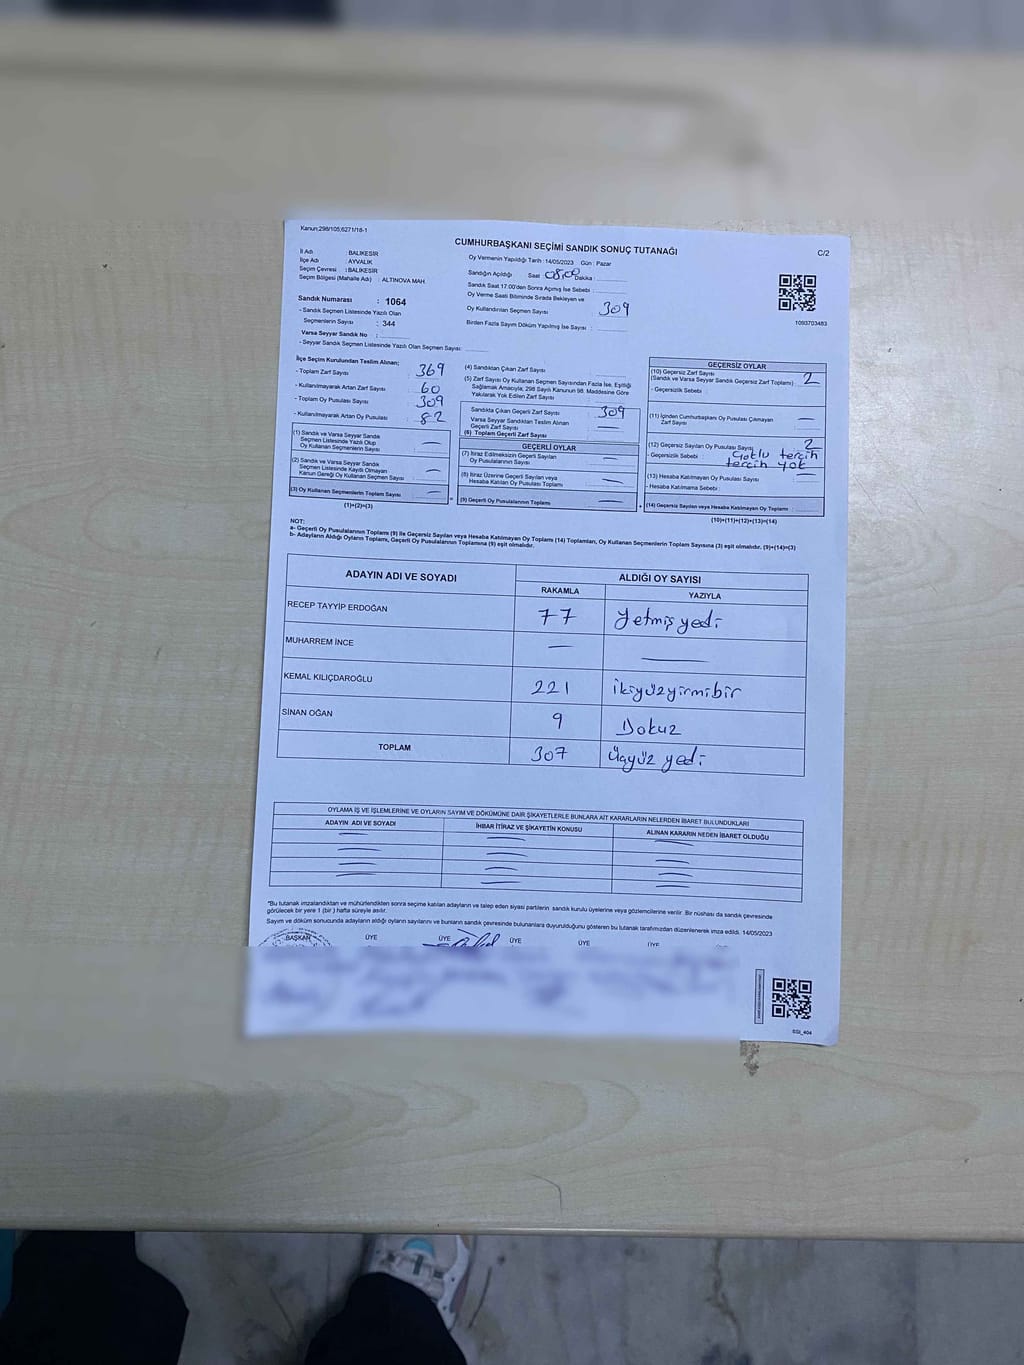 Kanun;298/105;6271/16-1
CUMHURBAŞKANI SEÇİMİ SANDIK SONUÇ TUTANAĞI
C/2
İl Adı : BALIKESİR
İlçe Adı : AYVALIK
Seçim Çevresi : BALIKESİR
Seçim Bölgesi (Mahalle Adı) : ALTINOVA MAH.
Oy Vermenin Yapıldığı Tarih : 14/05/2023 Gün : Pazar
Sandığın Açıldığı Saat : 08:00 Dakika :
Sandık Saat 17:00'den Sonra Açılmış İse Sebebi :
Oy Verme Saati Bitiminde Sırada Bekleyen ve
Oy Kullandırılan Seçmen Sayısı : 309
Birden Fazla Sayım Döküm Yapılmış İse Sayısı :
1093703483
Sandık Numarası : 1064
- Sandık Seçmen Listesinde Yazılı Olan
Seçmenlerin Sayısı : 344
Varsa Seyyar Sandık No :
- Seyyar Sandık Seçmen Listesinde Yazılı Olan Seçmen Sayısı:
İlçe Seçim Kurulundan Teslim Alınan;
- Toplam Zarf Sayısı : 369
- Kullanılmayarak Artan Zarf Sayısı : 60
- Toplam Oy Pusulası Sayısı : 309
- Kullanılmayarak Artan Oy Pusulası : 82
(1) Sandık ve Varsa Seyyar Sandık
Seçmen Listesinde Yazılı Olup
Oy Kullanan Seçmenlerin Sayısı : —
(2) Sandık ve Varsa Seyyar Sandık
Seçmen Listesinde Kayıtlı Olmayan
Kanun Gereği Oy Kullanan Seçmen Sayısı : —
(3) Oy Kullanan Seçmenlerin Toplam Sayısı : —
(1)+(2)=(3)
(4) Sandıktan Çıkan Zarf Sayısı :
(5) Zarf Sayısı Oy Kullanan Seçmen Sayısından Fazla İse, Eşitliği
Sağlamak Amacıyla; 298 Sayılı Kanunun 98. Maddesine Göre
Yakılarak Yok Edilen Zarf Sayısı :
Sandıkta Çıkan Geçerli Zarf Sayısı : 309
Varsa Seyyar Sandıktan Teslim Alınan
Geçerli Zarf Sayısı : —
(6) Toplam Geçerli Zarf Sayısı
GEÇERLİ OYLAR
(7) İtiraz Edilmeksizin Geçerli Sayılan
Oy Pusulalarının Sayısı : —
(8) İtiraz Üzerine Geçerli Sayılan veya
Hesaba Katılan Oy Pusulası Toplamı : —
(9) Geçerli Oy Pusulalarının Toplamı : —
GEÇERSİZ OYLAR
(10) Geçersiz Zarf Sayısı
(Sandık ve Varsa Seyyar Sandık Geçersiz Zarf Toplamı) : 2
- Geçersizlik Sebebi :
(11) İçinden Cumhurbaşkanı Oy Pusulası Çıkmayan
Zarf Sayısı : —
(12) Geçersiz Sayılan Oy Pusulası Sayısı : 2
- Geçersizlik Sebebi : Çoklu tercih
tercih yok
(13) Hesaba Katılmayan Oy Pusulası Sayısı : —
- Hesaba Katılmama Sebebi :
(14) Geçersiz Sayılan veya Hesaba Katılmayan Oy Toplamı :
(10)+(11)+(12)+(13)=(14)
NOT:
a- Geçerli Oy Pusulalarının Toplamı (9) ile Geçersiz Sayılan veya Hesaba Katılmayan Oy Toplamı (14) Toplamları, Oy Kullanan Seçmenlerin Toplam Sayısına (3) eşit olmalıdır. (9)+(14)=(3)
b- Adayların Aldığı Oyların Toplamı, Geçerli Oy Pusulalarının Toplamına (9) eşit olmalıdır.
ADAYIN ADI VE SOYADI
ALDIĞI OY SAYISI
RAKAMLA YAZIYLA
RECEP TAYYİP ERDOĞAN 77 Yetmiş yedi
MUHARREM İNCE — —
KEMAL KILIÇDAROĞLU 221 ikiyüzyirmibir
SİNAN OĞAN 9 Dokuz
TOPLAM 307 Üçyüz yedi
OYLAMA İŞ VE İŞLEMLERİNE VE OYLARIN SAYIM VE DÖKÜMÜNE DAİR ŞİKAYETLERLE BUNLARA AİT KARARLARIN NELERDEN İBARET BULUNDUKLARI
ADAYIN ADI VE SOYADI İHBAR İTİRAZ VE ŞİKAYETİN KONUSU ALINAN KARARIN NEDEN İBARET OLDUĞU
*Bu tutanak imzalandıktan ve mühürlendikten sonra seçime katılan adayların ve talep eden siyasi partilerin sandık kurulu üyelerine veya gözlemcilerine verilir. Bir nüshası da sandık çevresinde
görülecek bir yere 1 (bir ) hafta süreyle asılır.
Sayım ve döküm sonucunda adayların aldığı oyların sayılarını ve bunların sandık çevresinde bulunanlara duyurulduğunu gösteren bu tutanak tarafımızdan düzenlenerek imza edildi. 14/05/2023
BAŞKAN ÜYE ÜYE ÜYE ÜYE ÜYE
SSI_404